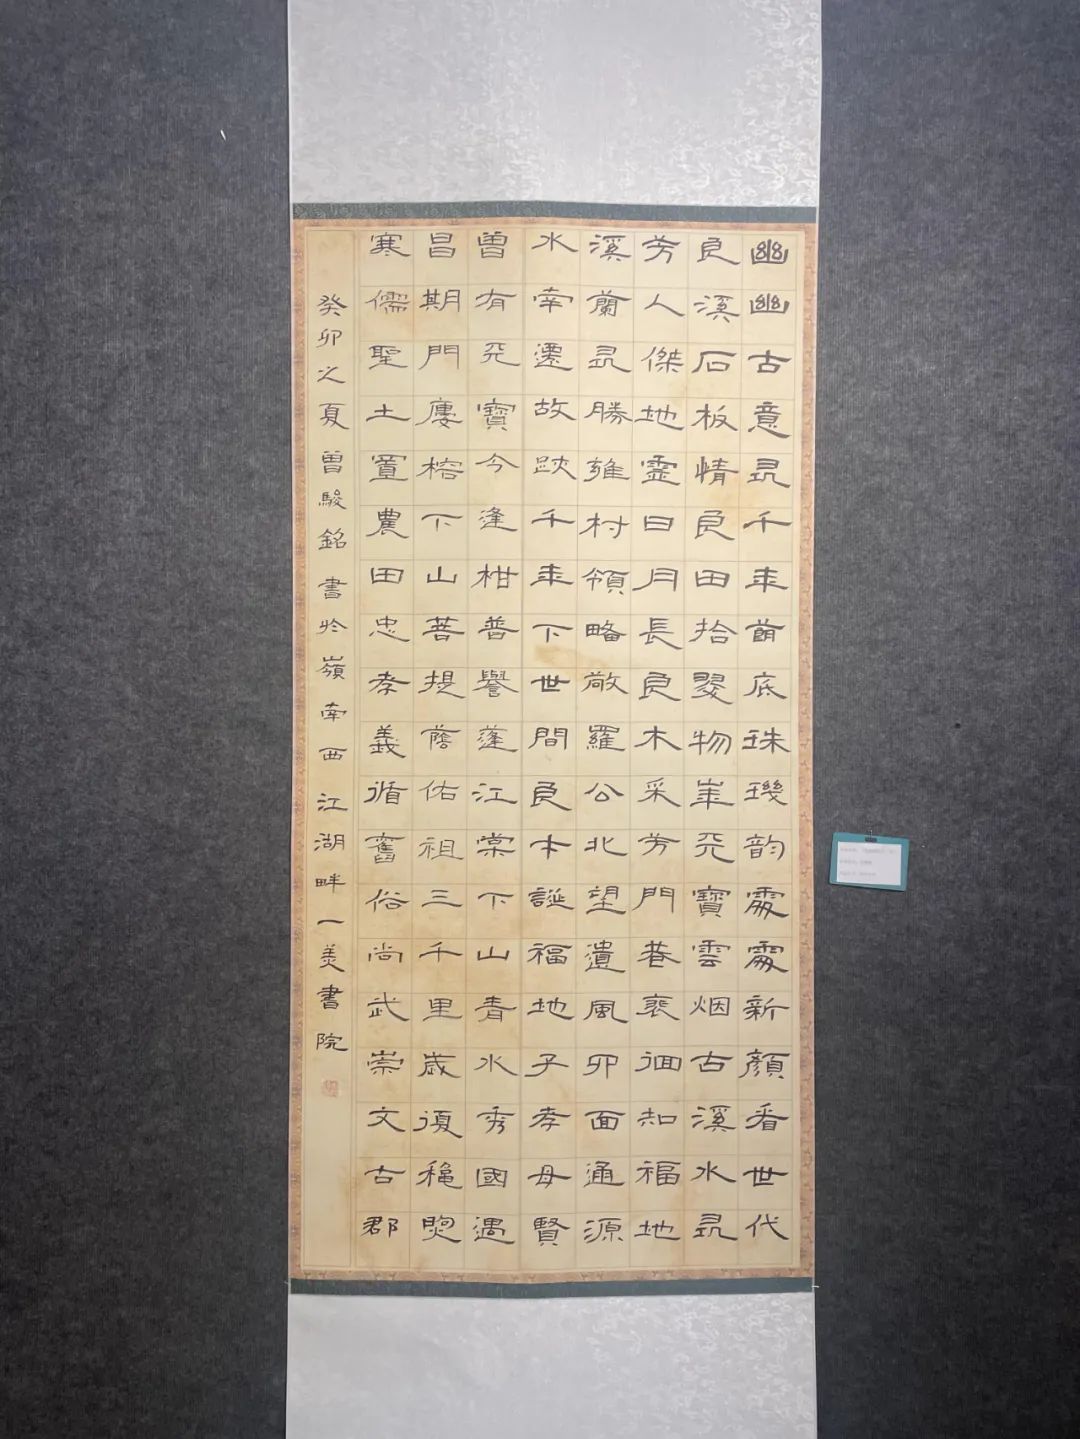 幽幽古意千年底珠璣韵處處新顏看世代
良溪石板情良田拾翠物華天寶雲烟古溪水
芳人傑地靈日月長良木采芳門巷裵徊知福地
溪蘭勝雄村領略敞羅公北望遺風卯面通源
水南遷故跡千年下世間良本誕福地子孝母賢
曾有天寶今逢柑普譽蓬江棠下山青水秀國遇
昌期門廔榕下山菩提蔭佑祖三千里歲復穐
寒儒聖土置農田忠孝義循舊俗尚武崇文古郡
癸卯之夏曾駿銘書於嶺南西江湖畔一美書院